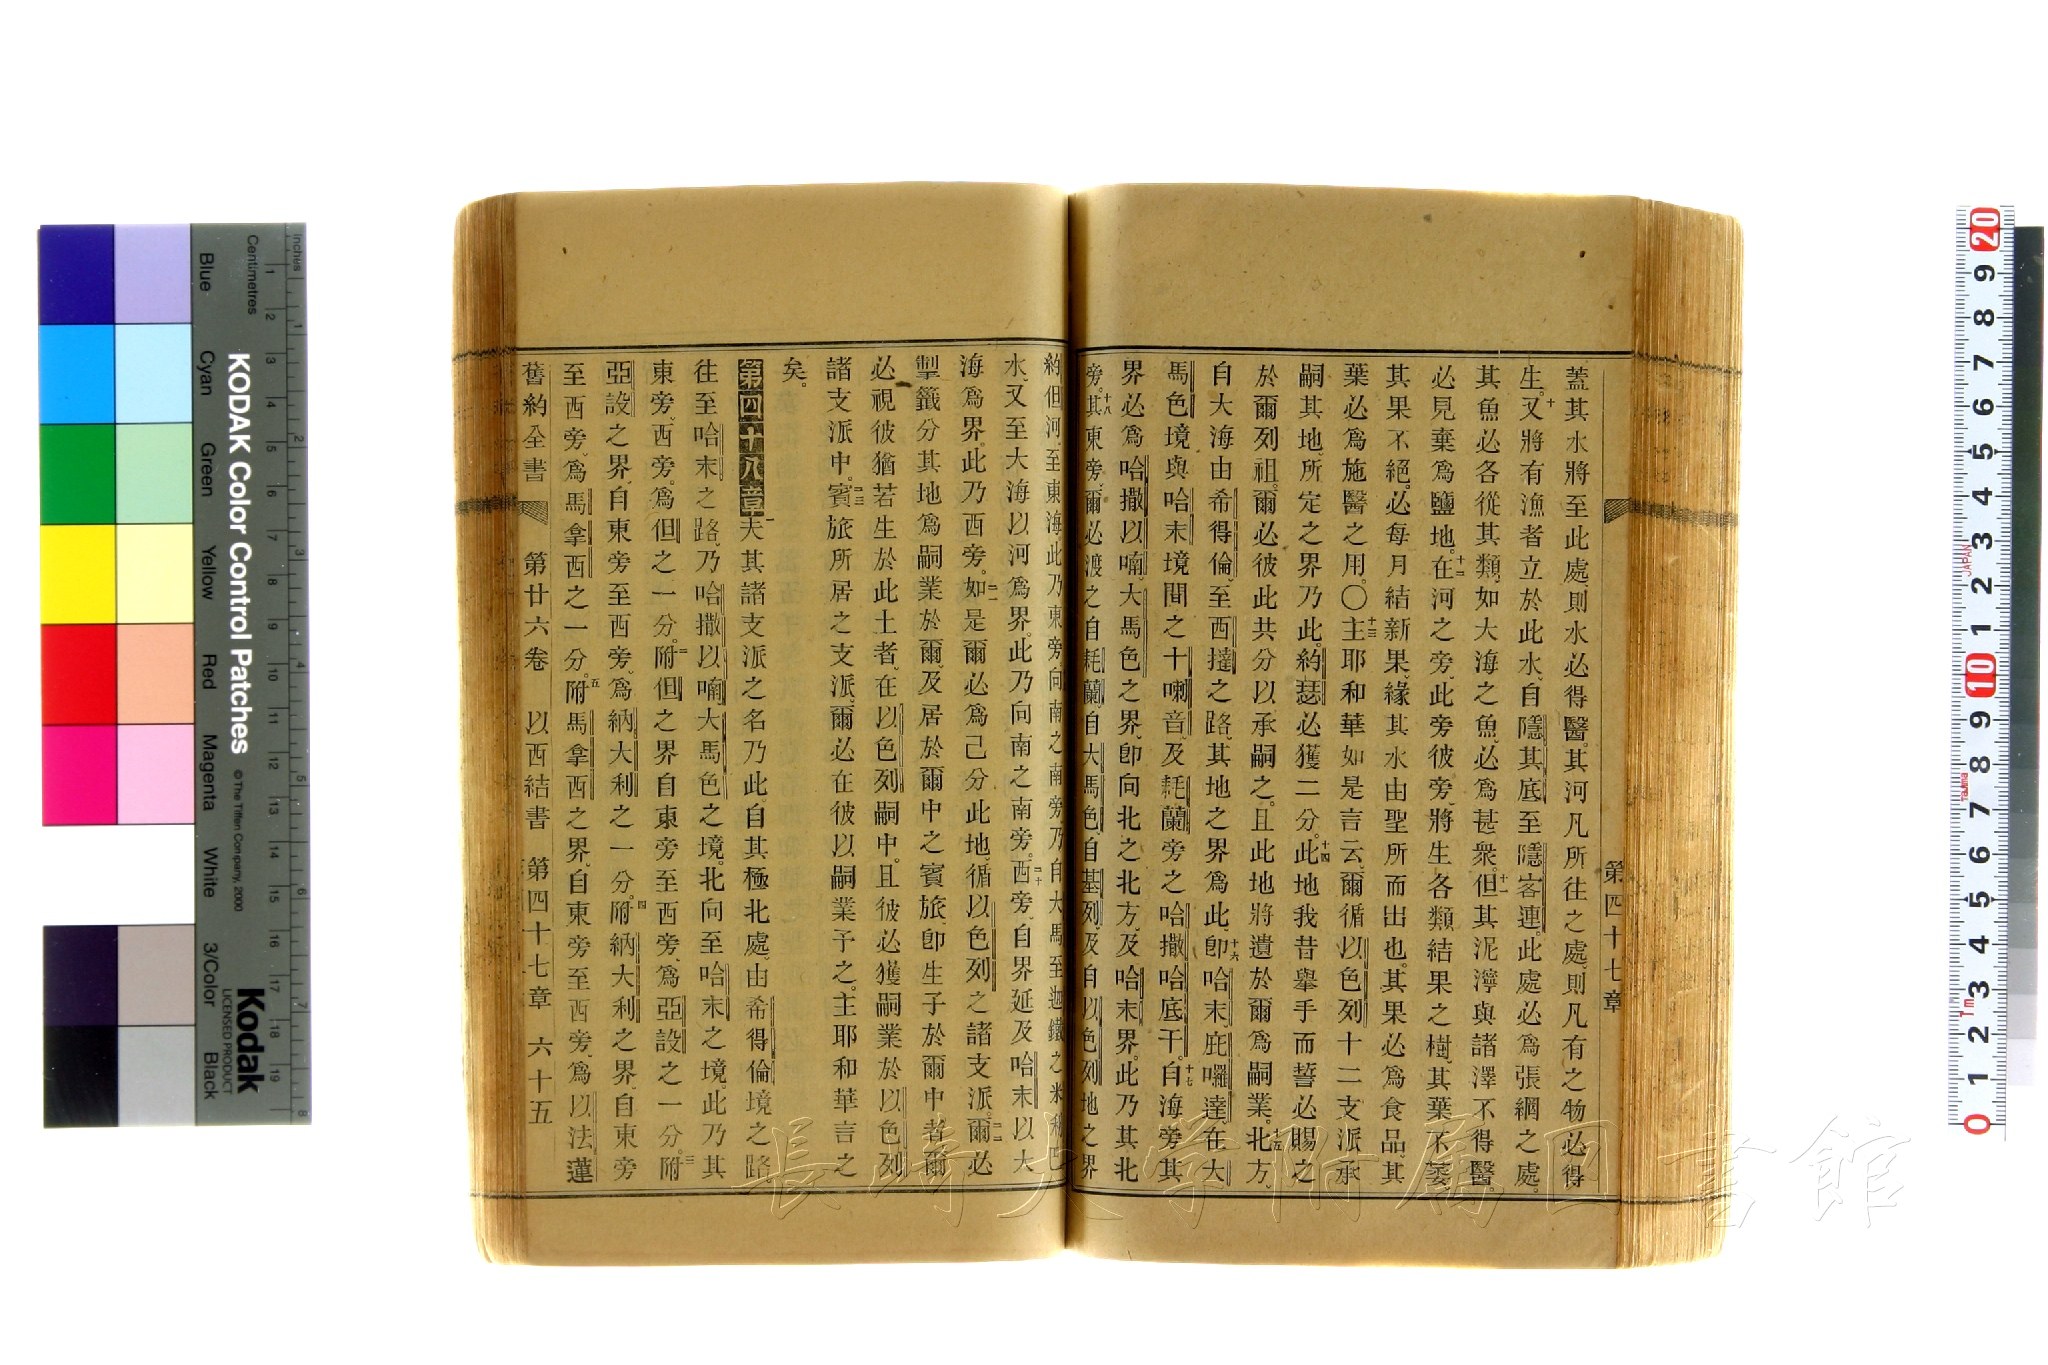 蓋其水將至此處、則水必得醫。其河凡所往之處、則凡有之物必得
生。十又將有漁者立於此水、自隱其底至隱客連。此處必為張綱之處。
其魚必各從其類、如大海之魚、必為甚衆。十一但其泥濘與諸澤不得醫。
必見棄為鹽地。十二在河之旁、此旁彼旁、將生各類結果之樹、其葉不萎、
其果不絕。必每月結新果、緣其水由聖所而出也。其果必為食品、其
葉必為施醫之用。〇十三主耶和華如是言云、爾循以色列十二支派承
嗣其地、所定之界乃此。約瑟必獲二分。十四此地我昔擧手而誓必賜之
於爾列祖。爾必彼此共分以承嗣之。且此地將遺於爾為嗣業。十五北方、
自大海由希得倫、至西撻之路、其地之界為此、十六卽哈末庇囉達、在大
馬色境與哈末境間之十喇音、及耗蘭旁之哈撒哈底干。十七自海旁其
界必為哈撒以喃、大馬色之界、卽向北之北方、及哈末界。此乃其北
旁。十八其東旁、爾必渡之自耗蘭、自大馬色、自基列、及自以色列地之界
第四十七章
約但河、至東海、此乃東旁向南之南旁、乃自大馬至迦鐵之米利巴
水、又至大海以河為界。此乃向南之南旁。二十西旁、自界延及哈末以大
海為界。此乃西旁。二一如是爾必為己分此地、循以色列之諸支派。二二爾必
掣籤分其地為嗣業於爾、及居於爾中之賓旅、卽生子於爾中者、爾
必視彼猶若生於此土者、在以色列嗣中。且彼必獲嗣業於以色列
諸支派中。二三賓旅所居之支派、爾必在彼以嗣業予之。主耶和華言之
矣。
第四十八章一夫其諸支派之名乃此、自其極北處、由希得倫境之路、
往至哈末之路、乃哈撒以喃、大馬色之境。北向至哈末之境。此乃其
東旁、西旁。為但之一分。二附但之界、自東旁至西旁、為亞設之一分。三附
亞設之界、自東旁至西旁、為納大利之一分。四附納大利之界、自東旁
至西旁、為馬拿西之一分。五附馬拿西之界、自東旁至西旁、為以法蓮
舊約全書 第廿六卷 以西結書 第四十七章 六十五
長崎大学附属図書館
KODAK Color Control Patches
© The Tiffen Company, 2000
Kodak
LICENSED PRODUCT
Inches
Centimetres
Blue Cyan Green Yellow Red Magenta White 3/Color Black
JAPAN
Tajima